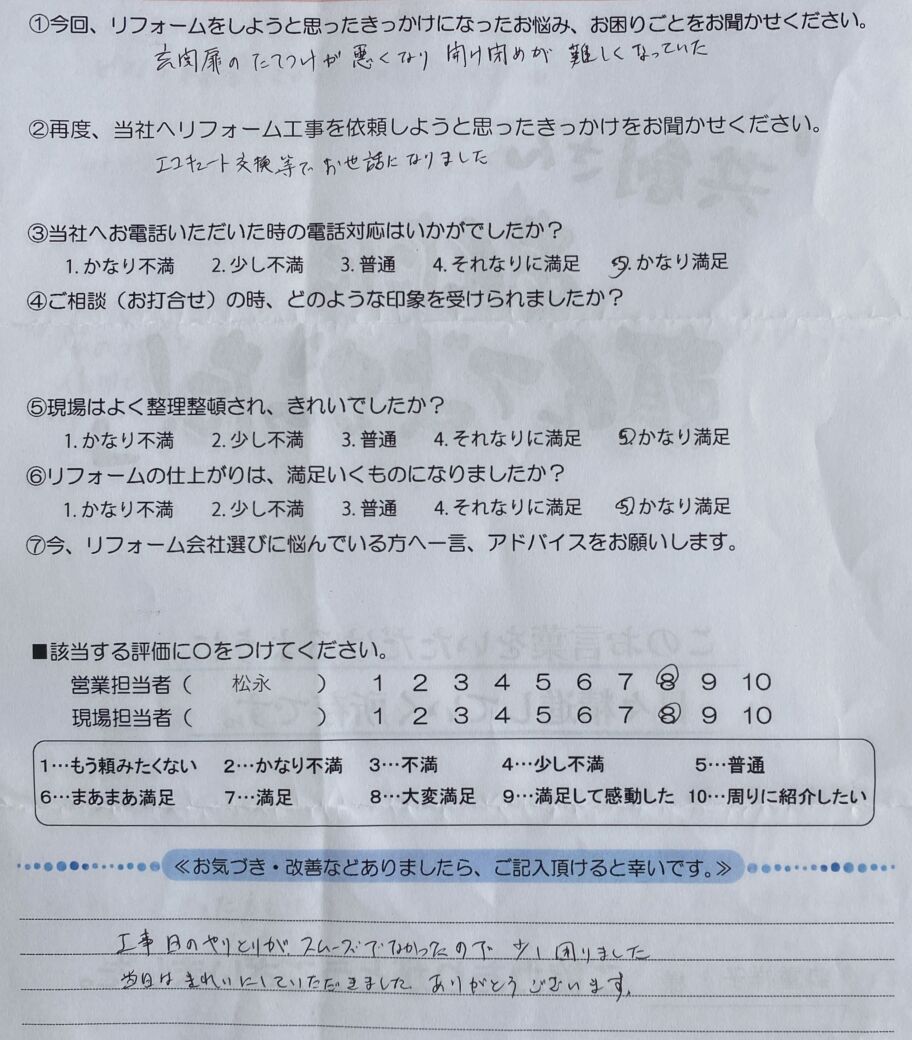 ①今回、リフォームをしようと思ったきっかけになったお悩み、お困りごとをお聞かせください。
玄関扉のたてつけが悪くなり 開け閉めが 難しくなっていた
②再度、当社へリフォーム工事を依頼しようと思ったきっかけをお聞かせください。
エコキュート交換等でお世話になりました
③当社へお電話いただいた時の電話対応はいかがでしたか？
1.かなり不満 2.少し不満 3.普通 4.それなりに満足 5.かなり満足
④ご相談（お打合せ）の時、どのような印象を受けられましたか？
⑤現場はよく整理整頓され、きれいでしたか？
1.かなり不満 2.少し不満 3.普通 4.それなりに満足 5.かなり満足
⑥リフォームの仕上がりは、満足いくものになりましたか？
1.かなり不満 2.少し不満 3.普通 4.それなりに満足 5.かなり満足
⑦今、リフォーム会社選びに悩んでいる方へ一言、アドバイスをお願いします。
■該当する評価に○をつけてください。
営業担当者（ 松永 ） 1 2 3 4 5 6 7 8 9 10
現場担当者（ ） 1 2 3 4 5 6 7 8 9 10
1…もう頼みたくない 2…かなり不満 3…不満 4…少し不満 5…普通
6…まあまあ満足 7…満足 8…大変満足 9…満足して感動した 10…周りに紹介したい
≪お気づき・改善などありましたら、ご記入頂けると幸いです。≫
工事日のやりとりが、スムーズでなかったので 少し困りました
当日はきれいにしていただきました ありがとうございます。